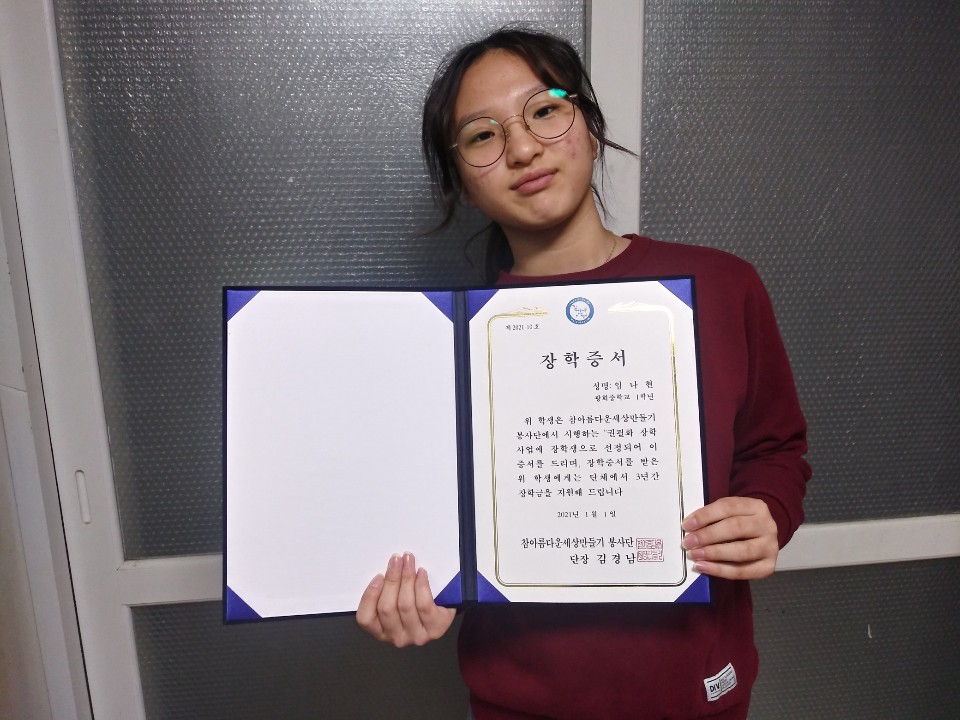 제 2021 10 호
장 학 증 서
성명: 임 나 현
광희중학교 1학년
위 학생은 참아름다운세상만들기
봉사단에서 시행하는 "권결화 장학
사업에 장학생으로 선정되어 이
증서를 드리며, 장학증서를 받은
위 학생에게는 단체에서 3년간
장학금을 지원해 드립니다
2021년 1 월 1 일
참아름다운세상만들기 봉사단
단장 김 경 남
DIV